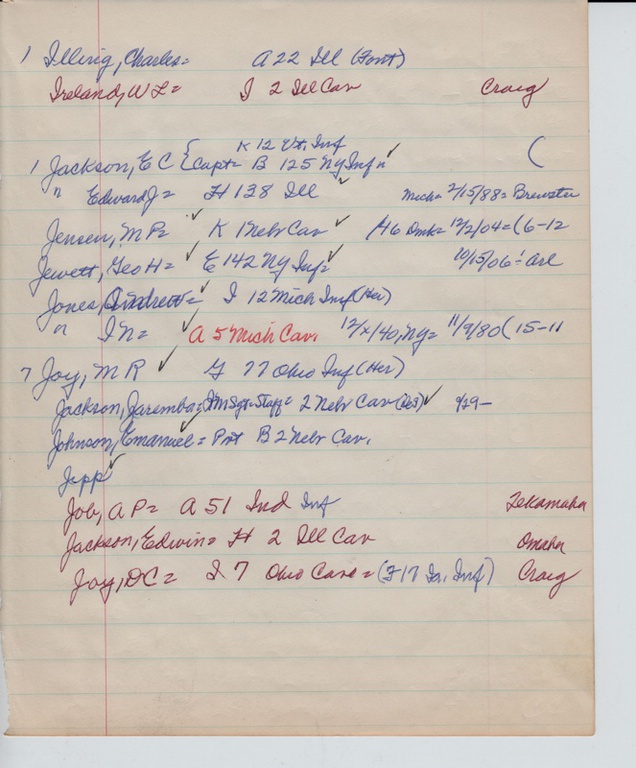 1 Illing, Charles= A 22 Ill (Font)
Ireland, W L= I 2 Ill Cav Craig
K 12 Vt. Inf
1 Jackson, E C { Capt= B 125 NY Inf= ✓ (
" Edward J= H 138 Ill ✓ Mich= 2/15/88= Brewster
Jensen, M P= ✓ K 1 Nebr Cav ✓ /46 Dmk= 12/2/04=(6-12
Jewett, Geo H= ✓ E 142 NY Inf= ✓ 10/15/06=
Jones, ✓ I 12 Mich Inf (Her)
" I N= ✓ A 5 Mich Cav. 12/x/40, NY= 11/9/80 (15-11
7 Joy, M R ✓ G 77 Ohio Inf (Her)
Jackson, 2 Nebr Cav ✓ 9/29-
Johnson, Emanuel= ✓ Pvt B 2 Nebr Cav.
Jipp ✓
Job, A P= A 51 Ind Inf Tekamah
Jackson, Edwin= H 2 Ill Cav Omaha
Joy, D C= I 7 Ohio Cav= (F 17 Ia. Inf) Craig